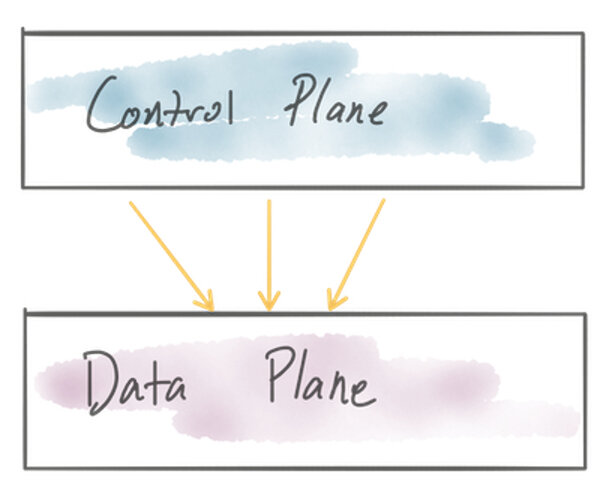 Control Plane
Data Plane